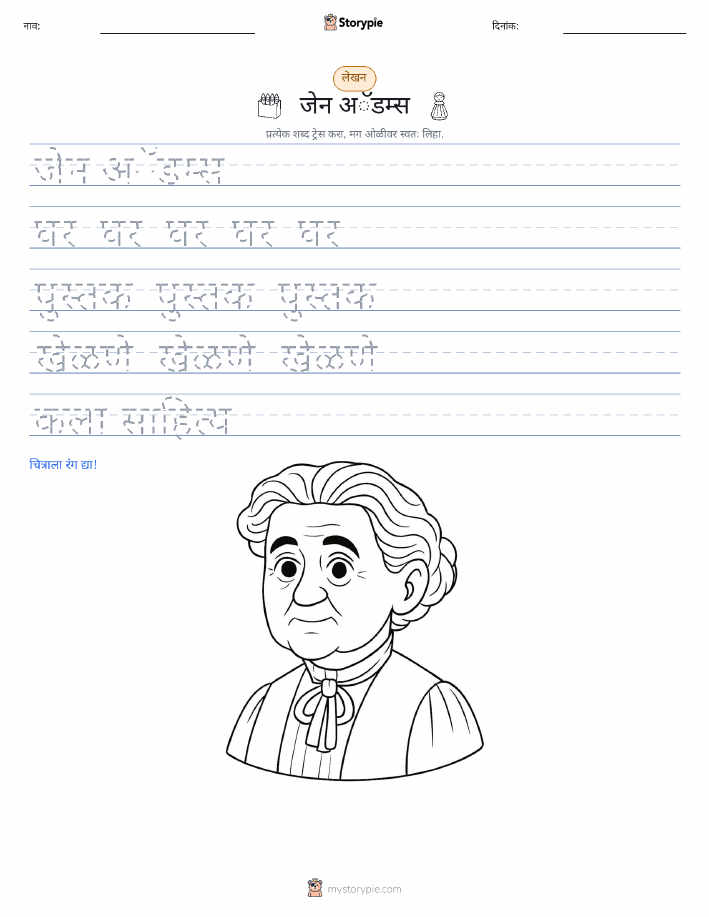 नाव:
Storypie
दिनांक:
लेखन
जेन अॅडम्स
प्रत्येक शब्द ट्रेस करा, मग ओळीवर स्वतः लिहा.
जेन अॅडम्स
घर घर घर घर घर
पुस्तक पुस्तक पुस्तक
खेळणे खेळणे खेळणे
कला साहित्य
चित्राला रंग द्या!
mystorypie.com